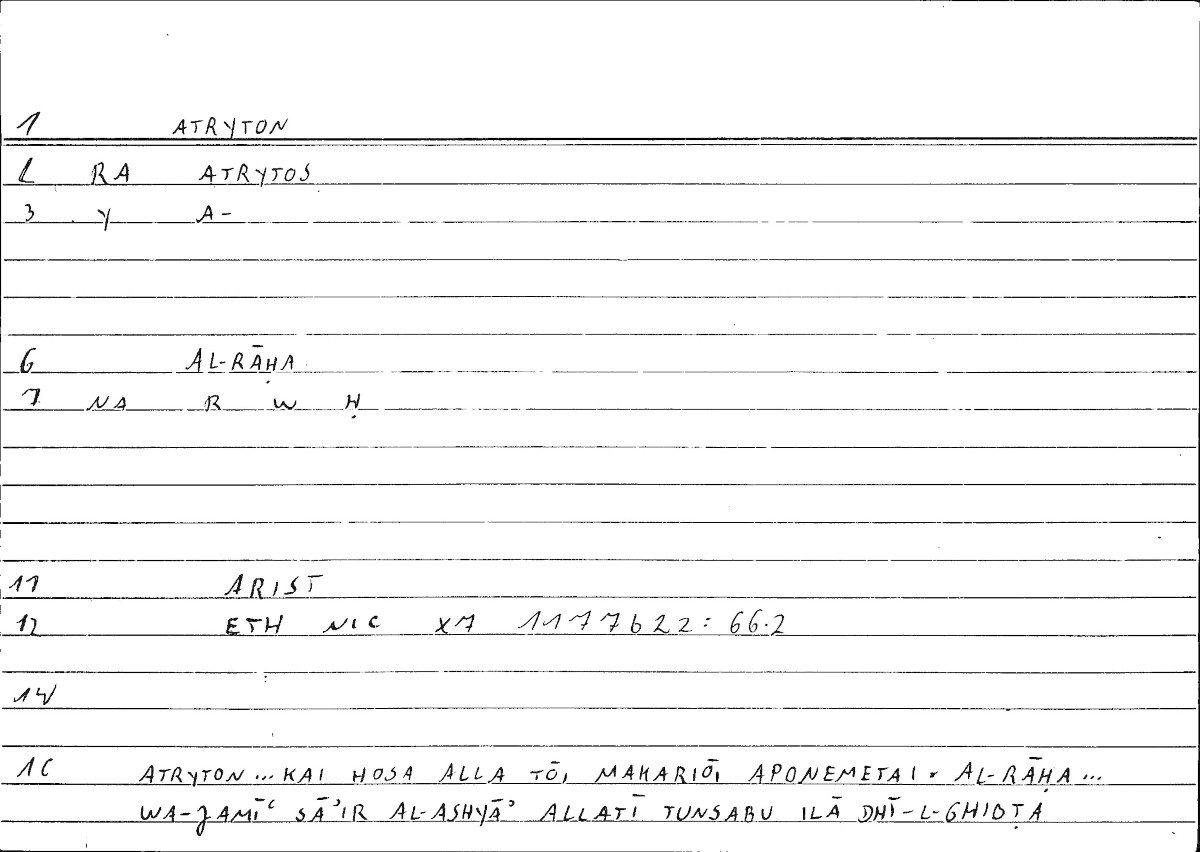 1 ATRYTON
2 RA ATRYTOS
3 Y A-
6 AL-RĀḤA
7 NA R W Ḥ
11 ARIST
12 ETH NIC X7 1177b22: 66.2
14
16 ATRYTON... KAI HOSA ALLA TŌI MAKARIŌI APONEMETAI. AL-RĀḤA...
WA-JAMĪʿ SĀʾIR AL-ASHYĀʾ ALLATĪ TUNSABU ILĀ DHĪ-L-GHIBṬA